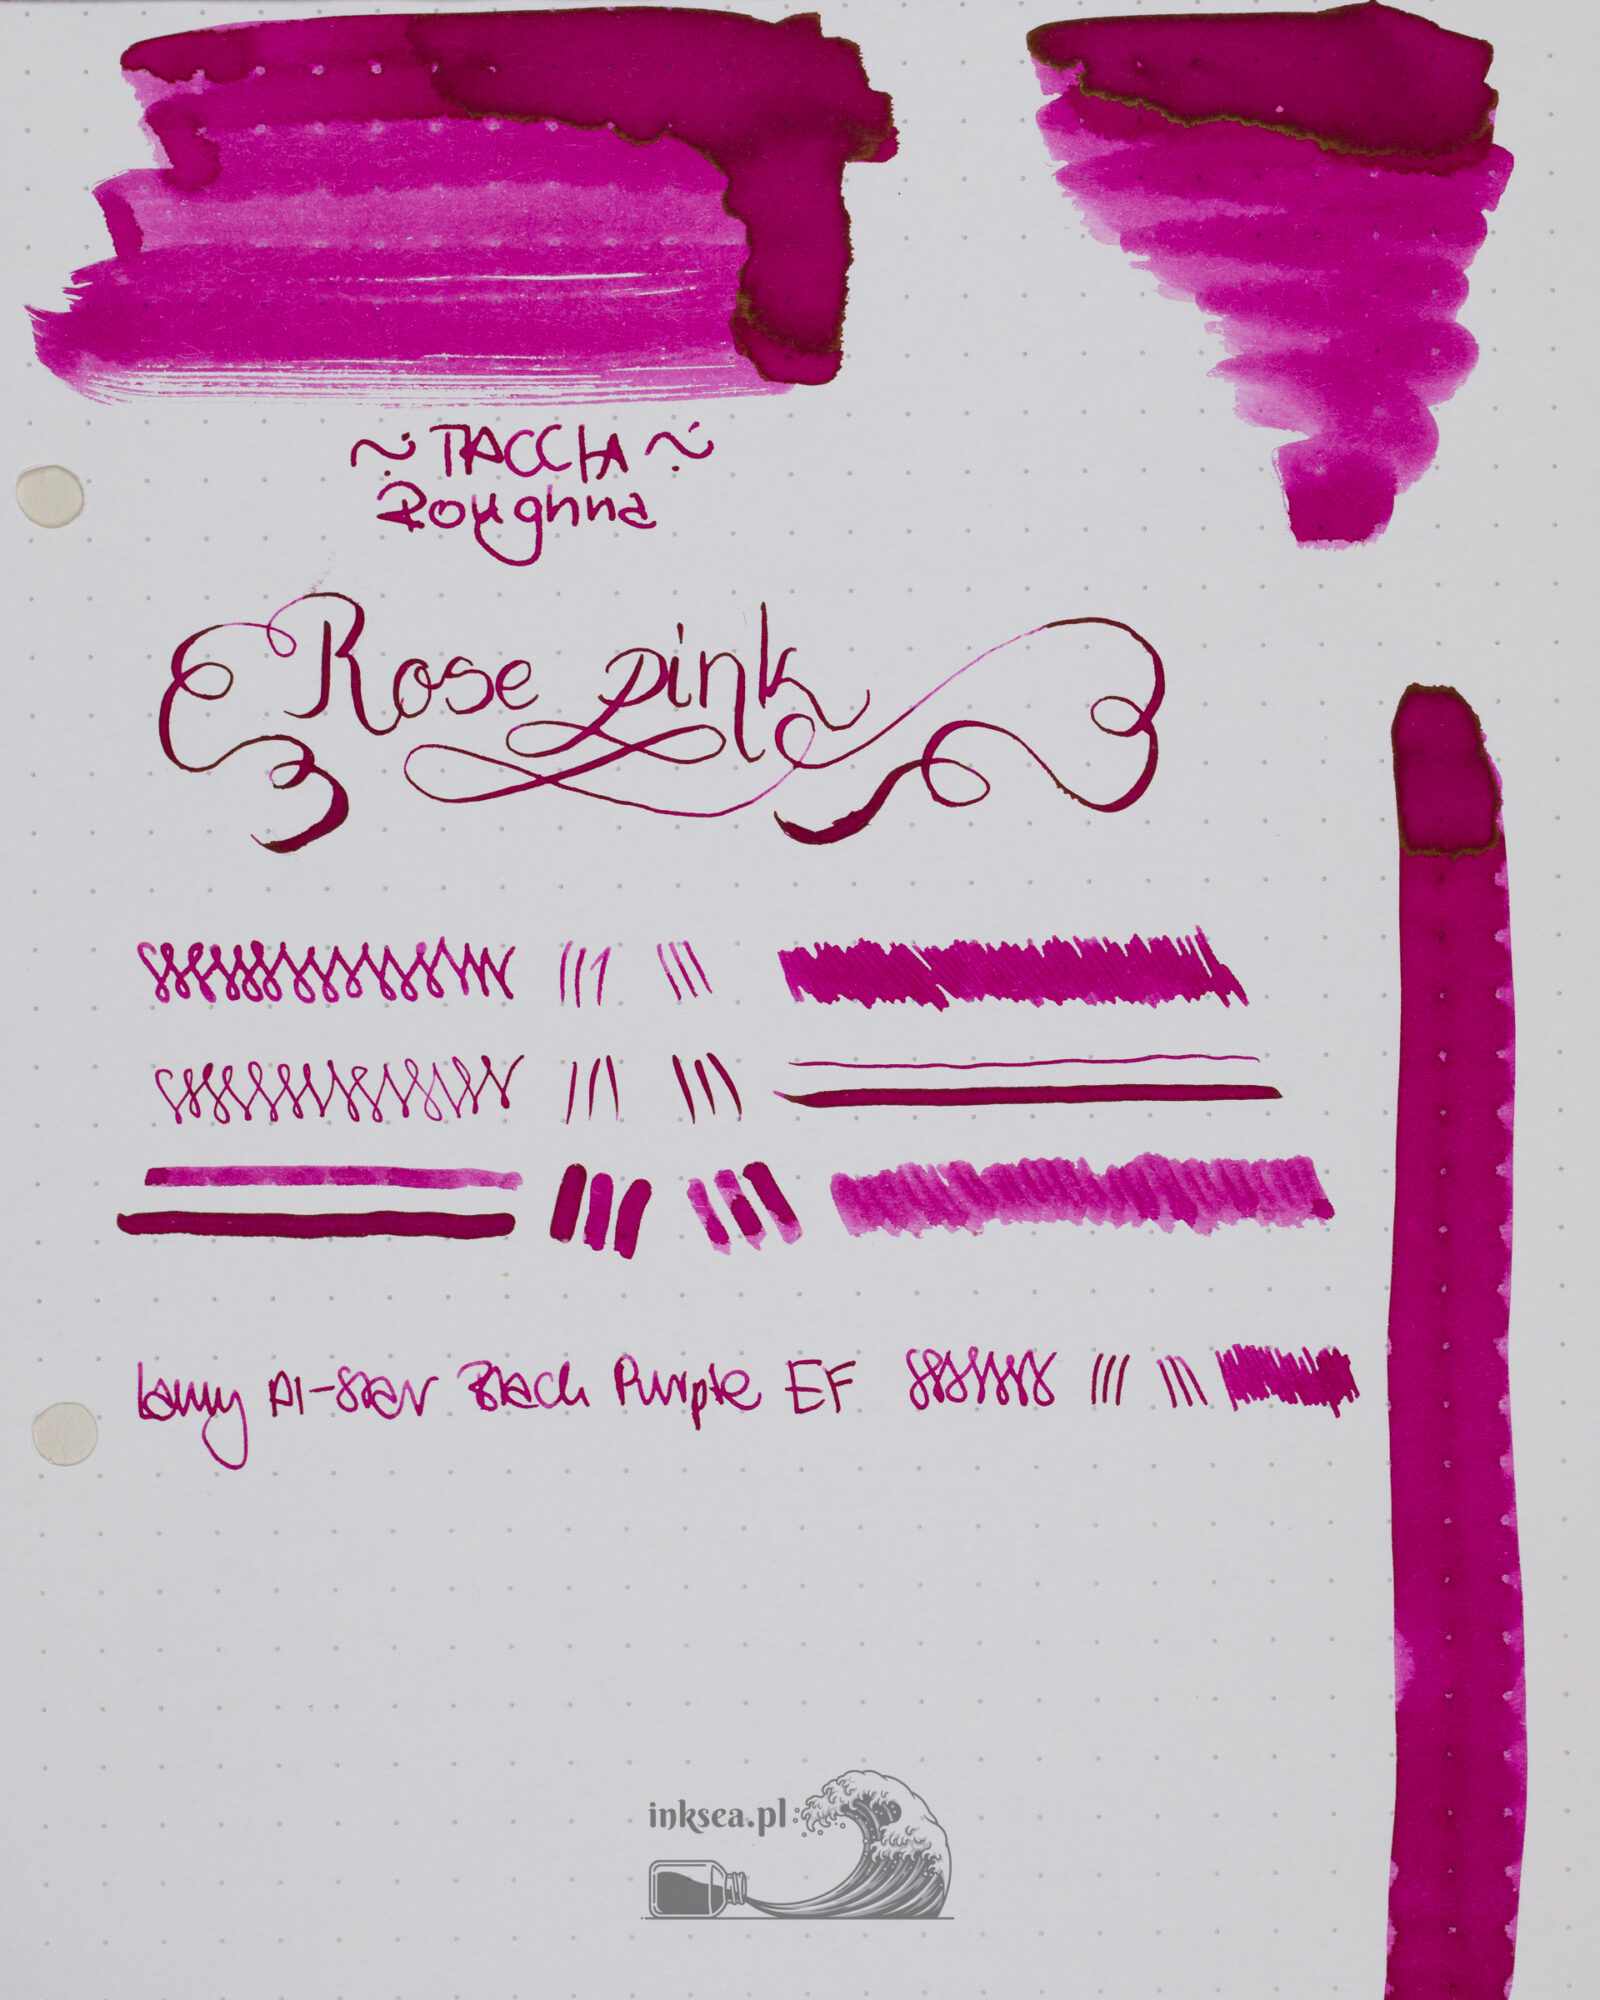 ~ TACCIA ~
Roughna
Rose pink
Lamy Al-Star Black Purple EF
inksea.pl